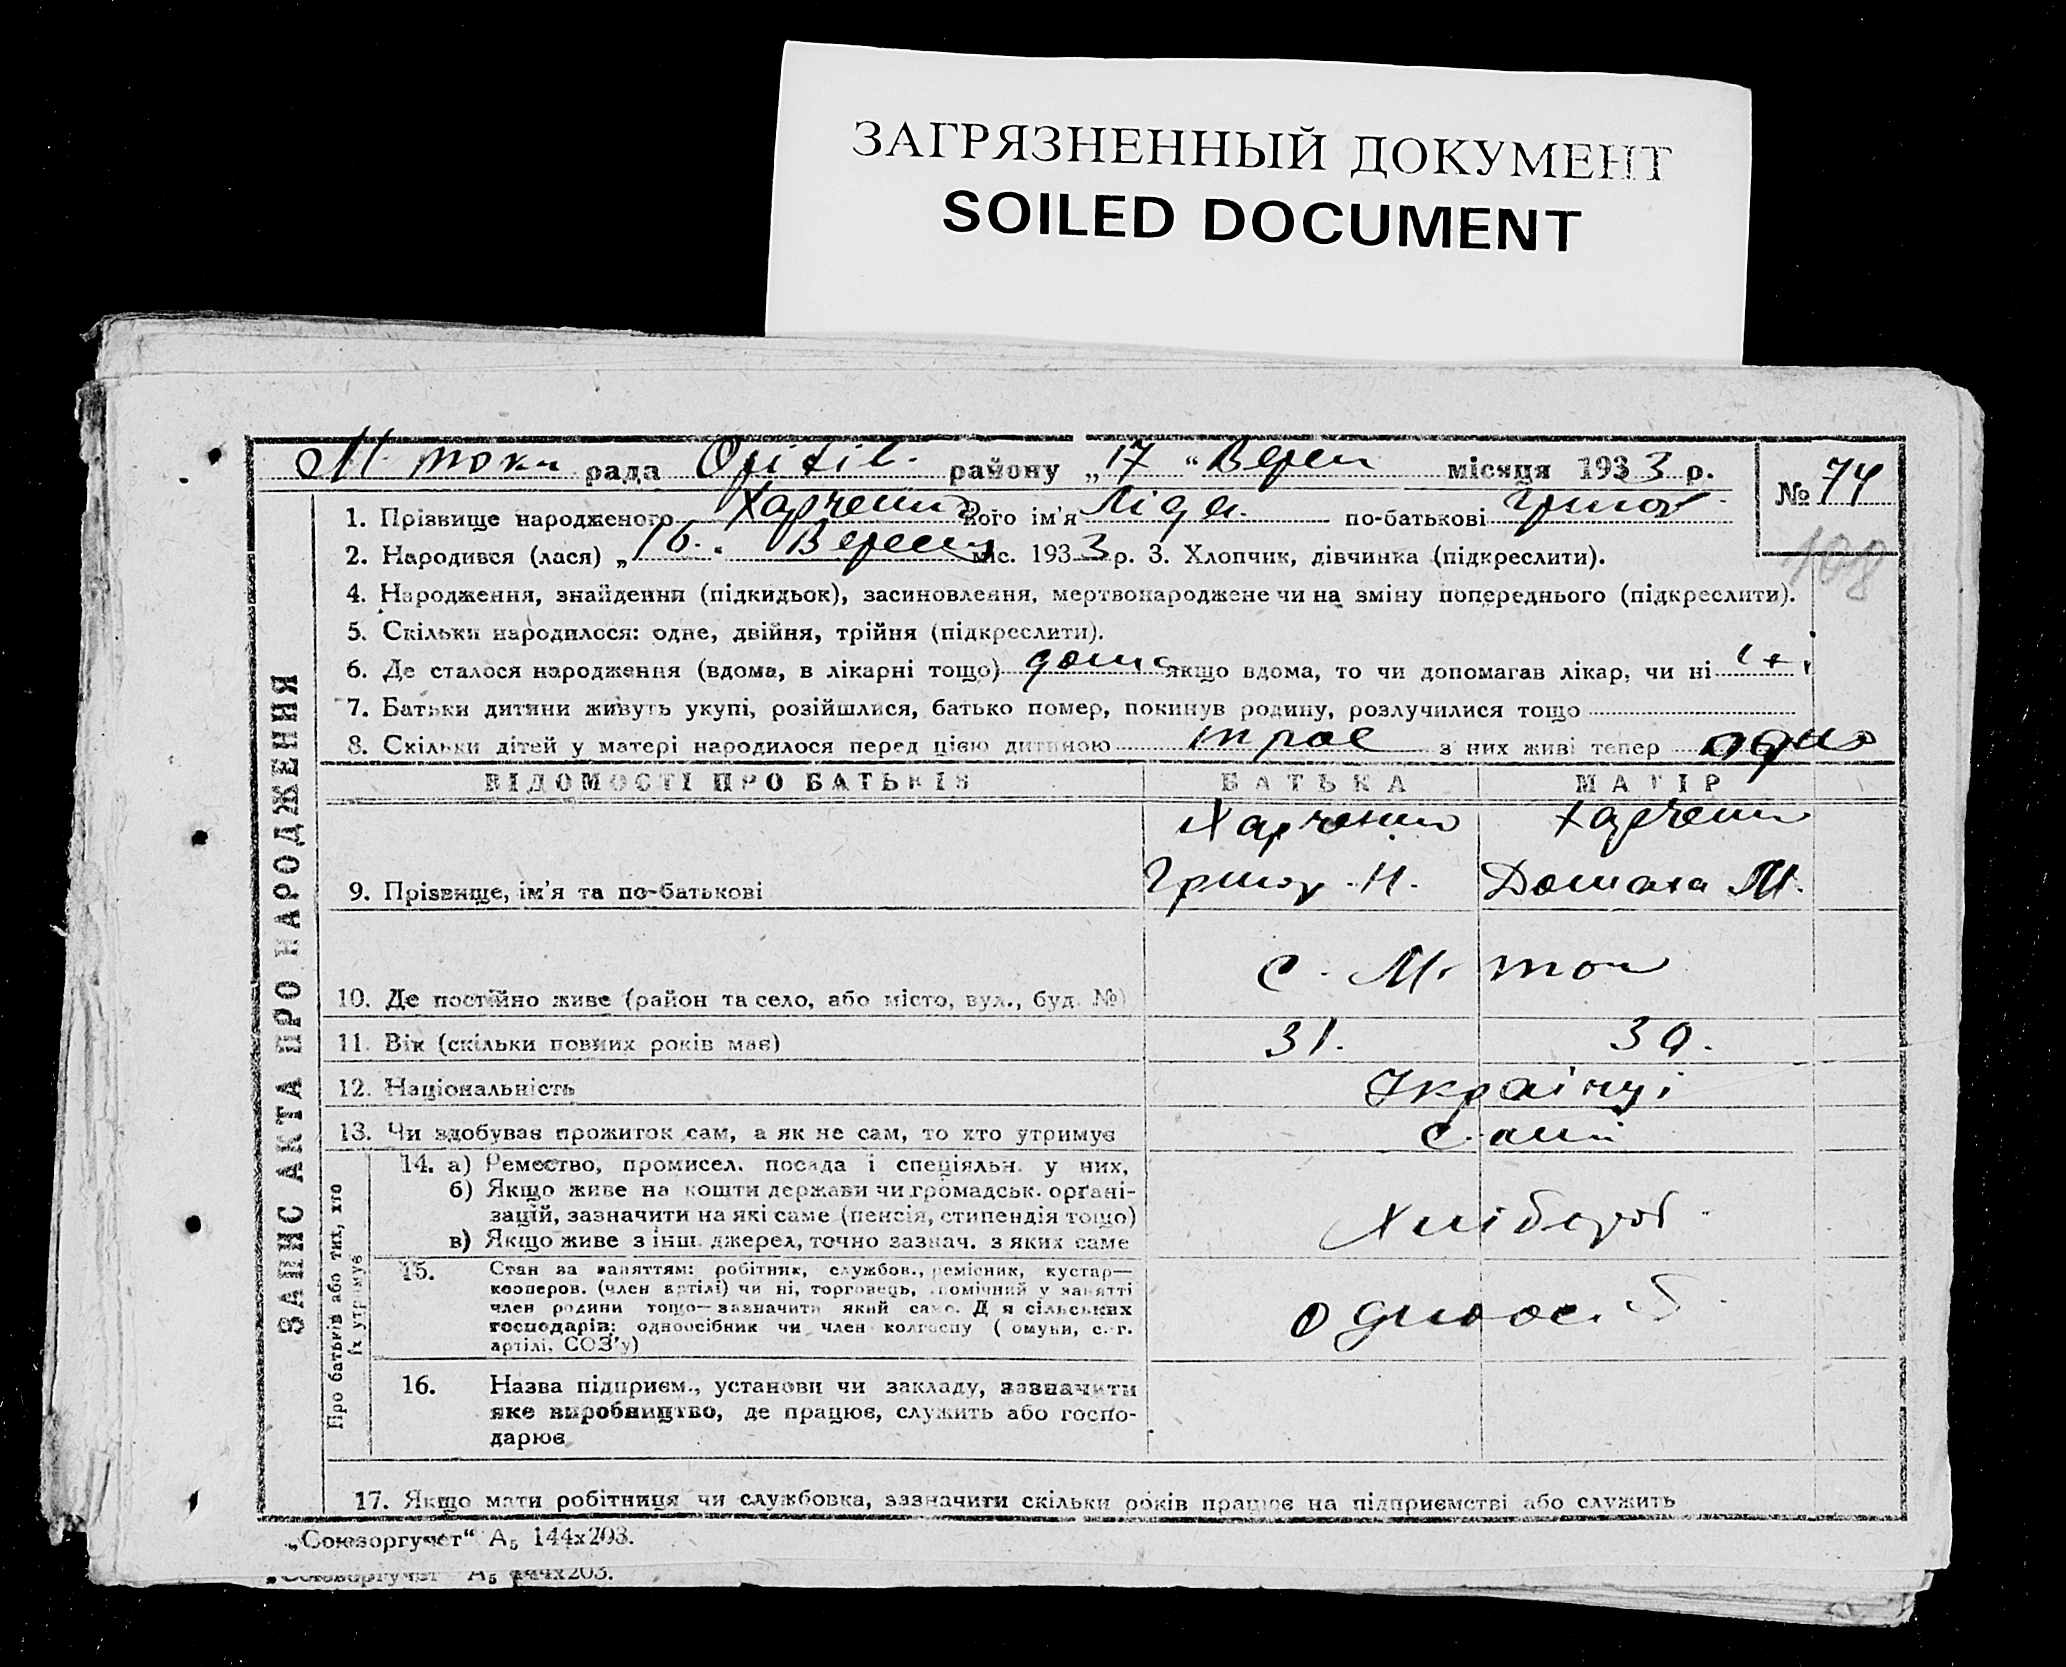 ЗАГРЯЗНЕННЫЙ ДОКУМЕНТ
SOILED DOCUMENT
М. токи рада Оріхів. району „17 “ Верес місяця 1933 р.
№ 74
108
1. Прізвище народженого Харченко його ім'я Ліда по-батькові Григор
2. Народився (лася) „16. Верес міс. 1933 р. 3. Хлопчик, дівчинка (підкреслити).
4. Народження, знайдення (підкидьок), засиновлення, мертвонароджене чи на зміну попереднього (підкреслити).
5. Скільки народилося: одне, двійня, трійня (підкреслити).
6. Де сталося народження (вдома, в лікарні тощо) дома якщо вдома, то чи допомагав лікар, чи ні
7. Батьки дитини живуть укупі, розійшлися, батько помер, покинув родину, розлучилися тощо
8. Скільки дітей у матері народилося перед цією дитиною троє з них живі тепер одно
ВІДОМОСТІ ПРО БАТЬКІВ БАТЬКА МАТІР
Харченко Харченко
9. Прізвище, ім'я та по-батькові Григор. Н. Домаха М.
10. Де постійно живе (район та село, або місто, вул., буд. №) с. М. токи
11. Вік (скільки повних років має) 31. 30.
12. Національність Українці
13. Чи здобував прожиток сам, а як не сам, то хто утримує самі
14. а) Ремество, промисел, посада і спеціяльн. у них,
б) Якщо живе на кошти держави чи громадськ. органі-
зацій, зазначити на які саме (пенсія, стипендія тощо) Хлібороб
в) Якщо живе з інш. джерел, точно зазнач. з яких саме
15. Стан за заняттям: робітник, службов., ремісник, кустар—
кооперов. (член артілі) чи ні, торговець, помічний у занятті
член родини тощо—зазначити який саме. Для сільських
господарів: одноосібник чи член колгоспу (комуни, с.-г.
артілі, СОЗ'у) одноосіб
16. Назва підприєм., установи чи закладу, зазначити
яке виробництво, де працює, служить або госпо-
дарює
17. Якщо мати робітниця чи службовка, зазначити скільки років працює на підприємстві або служить
ЗАПИС АКТА ПРО НАРОДЖЕННЯ
Про батьків або тих, хто
їх утримує
„Союзоргучет“ А₅ 144х203.
„Союзоргучет“ А₅ 144х203.